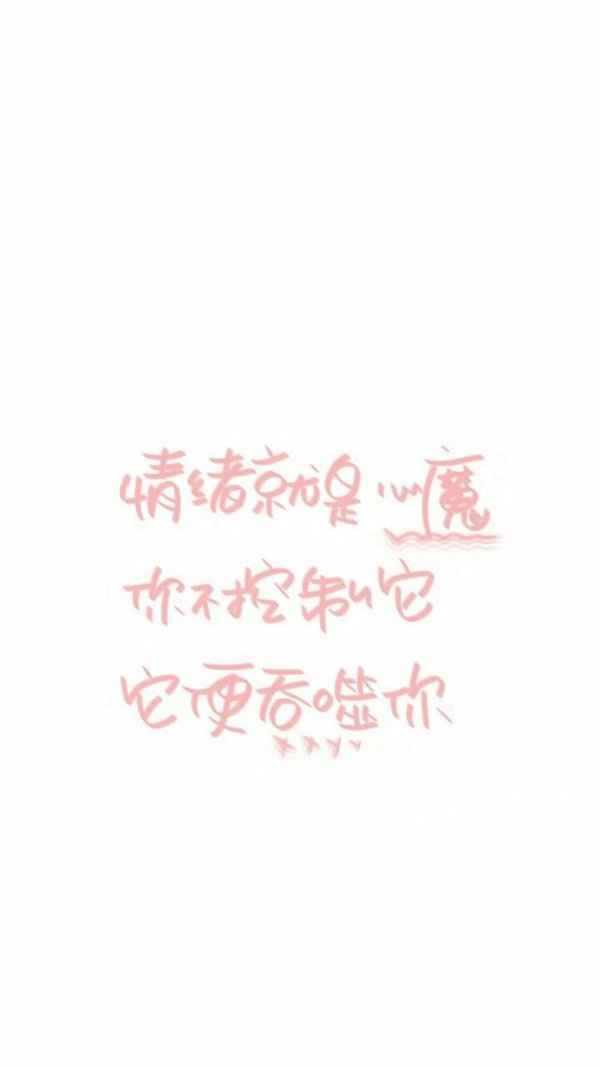 情绪就是心魔
你不控制它
它便吞噬你